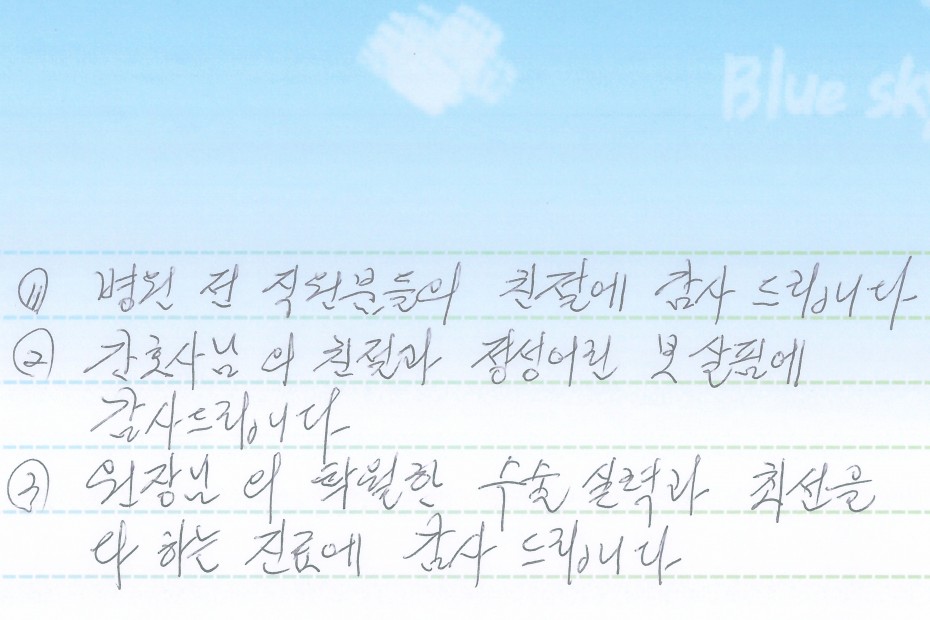 Blue sky
① 병원 전 직원분들의 친절에 감사 드립니다
② 간호사님의 친절과 정성어린 보살핌에
감사드립니다
③ 원장님의 탁월한 수술 실력과 최선을
다 하는 진료에 감사 드립니다